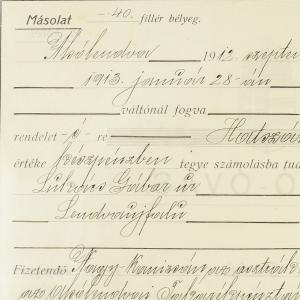 Másolat -.40. fillér bélyeg.
Alsólendva 1912. szepte
1913. január 28-án
váltónál fogva
rendelet -ő- re Hatszáz
értéke készpénzben tegye számolásba tud
Lukács Gábor úr
Lendvaujfalu
Fizetendő Nagy-Kanizsán az osztrák
az Alsólendvai Takarékpénztár